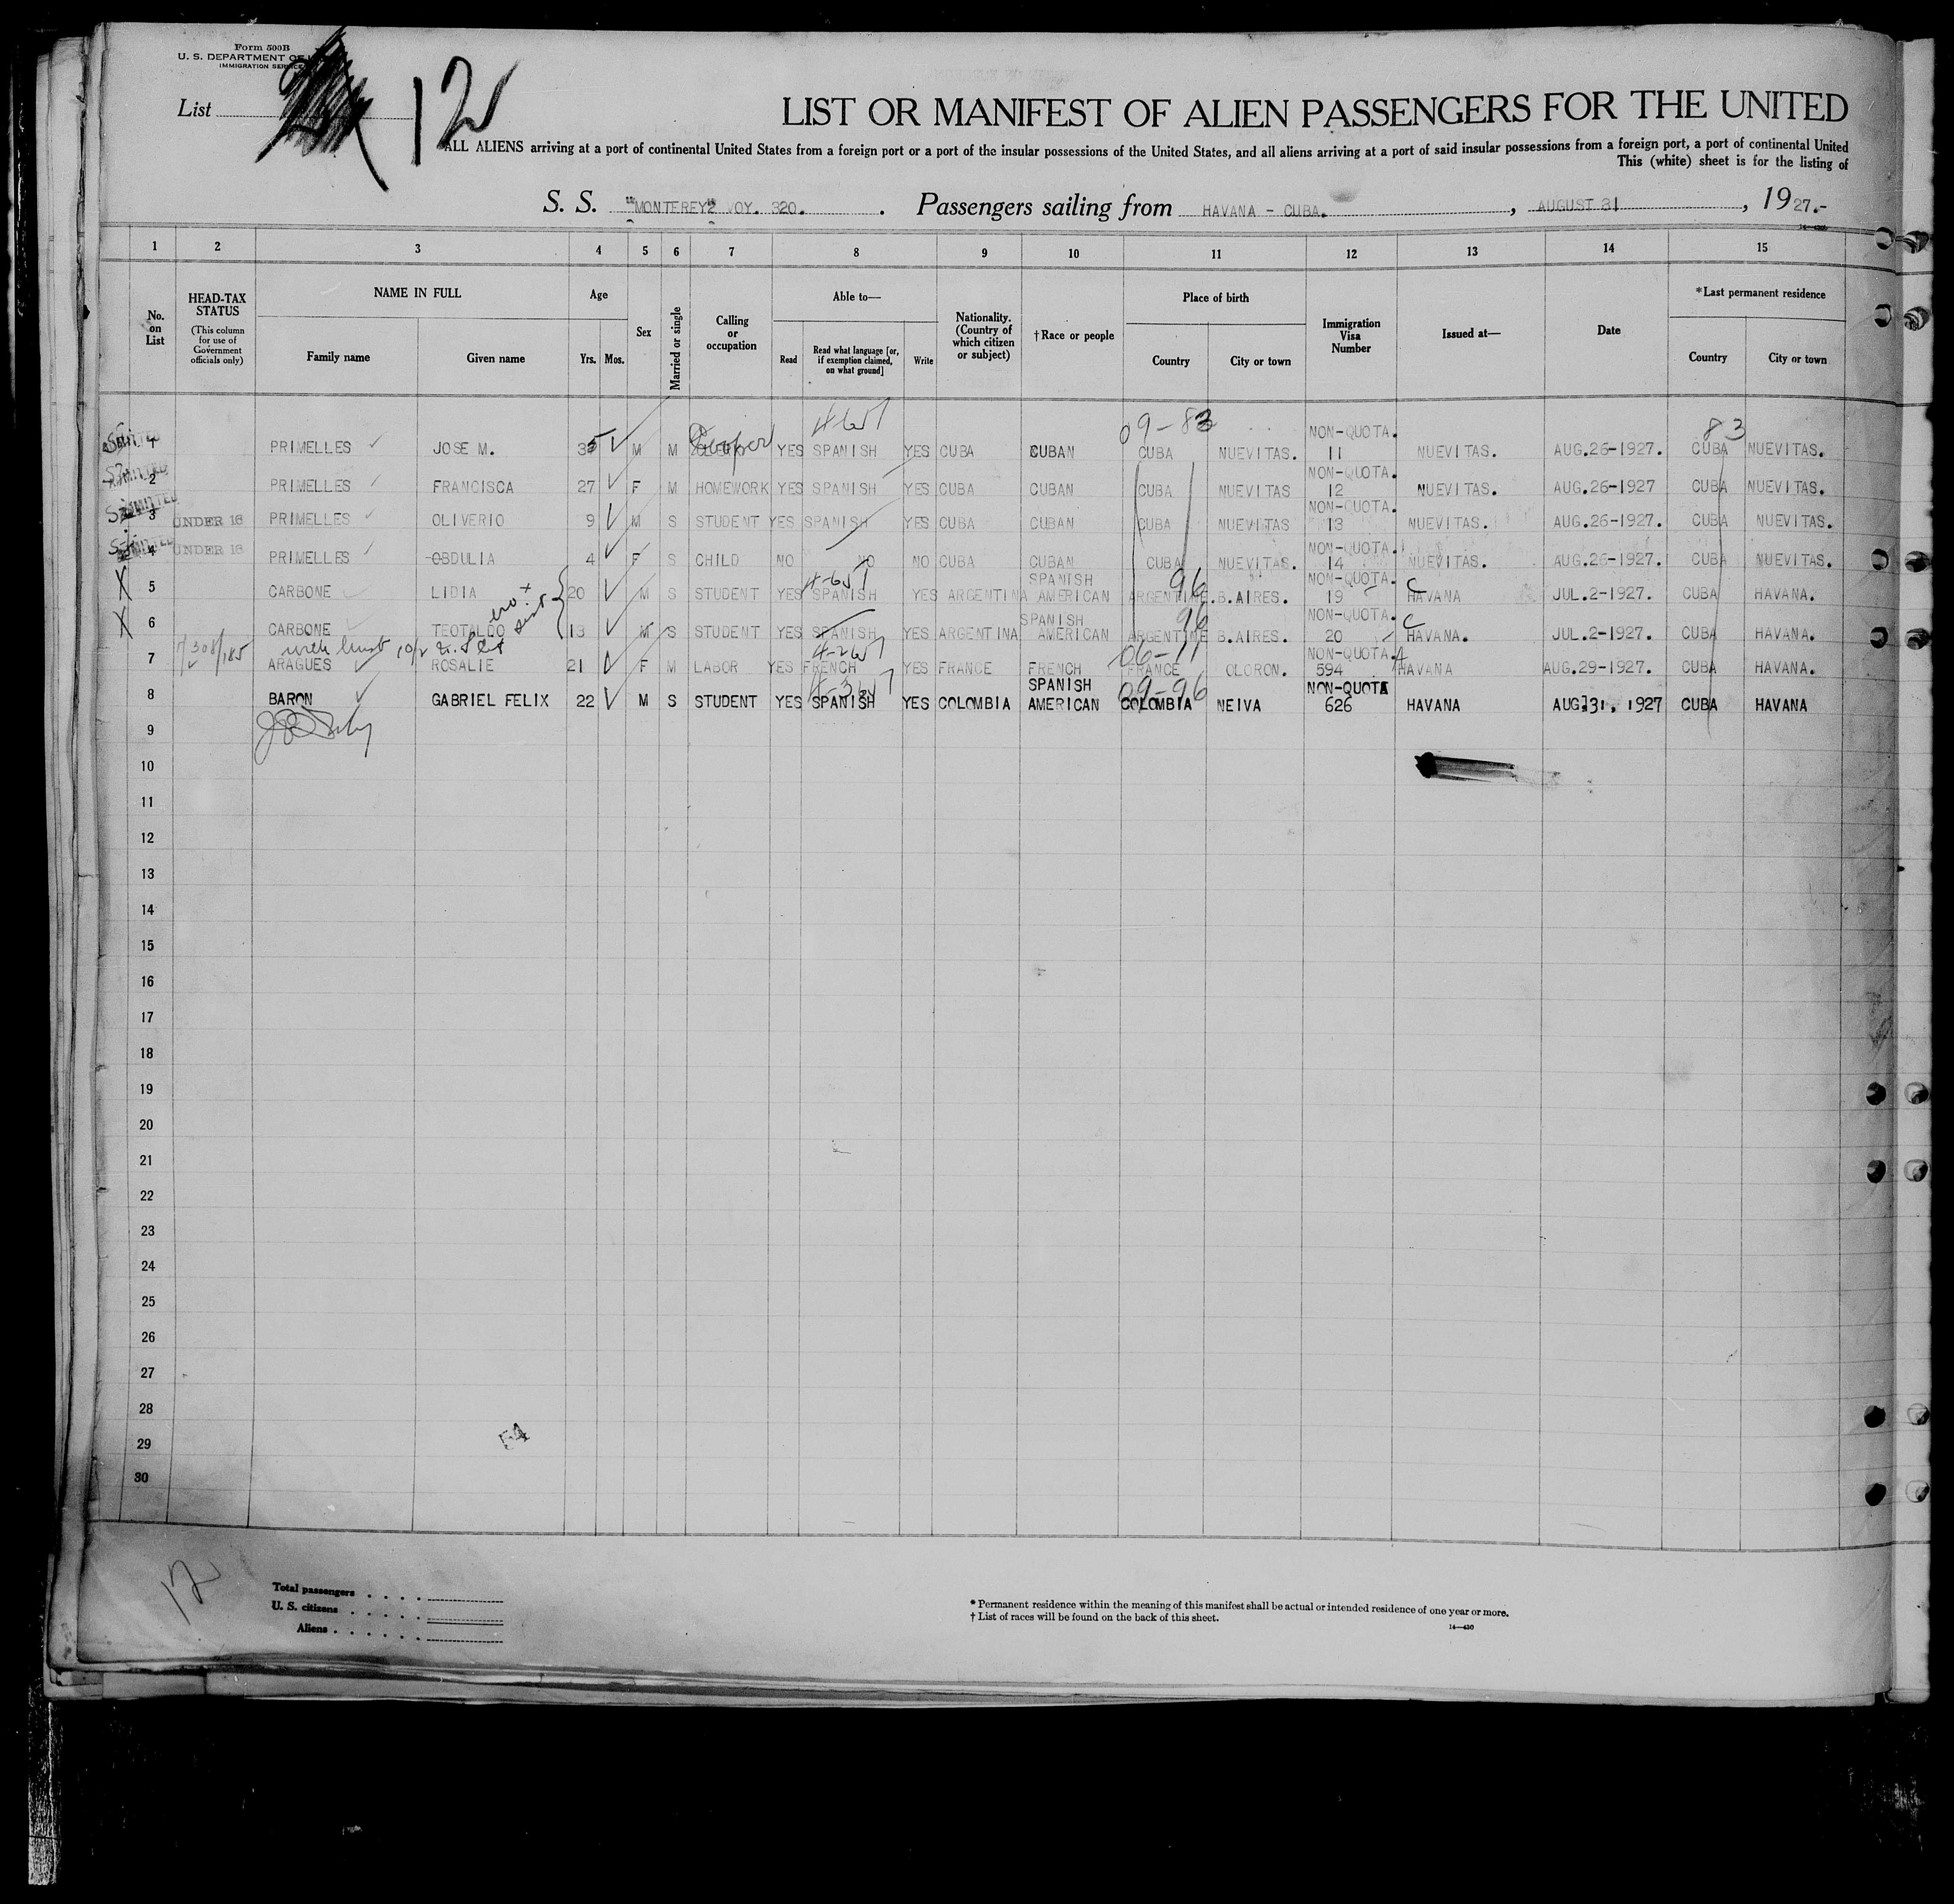 Form 500B
U. S. DEPARTMENT OF
IMMIGRATION SERVICE
List 12
LIST OR MANIFEST OF ALIEN PASSENGERS FOR THE UNITED
ALL ALIENS arriving at a port of continental United States from a foreign port or a port of the insular possessions of the United States, and all aliens arriving at a port of said insular possessions from a foreign port, a port of continental United
This (white) sheet is for the listing of
S. S. "MONTEREY" VOY. 320. Passengers sailing from HAVANA - CUBA. , AUGUST 31 , 1927.-
1 2 3 4 5 6 7 8 9 10 11 12 13 14 15
No. on List
HEAD-TAX STATUS (This column for use of Government officials only)
NAME IN FULL
Family name Given name
Age
Yrs. Mos.
Sex
Married or single
Calling or occupation
Able to—
Read
Read what language [or, if exemption claimed, on what ground]
Write
Nationality. (Country of which citizen or subject)
†Race or people
Place of birth
Country City or town
Immigration Visa Number
Issued at—
Date
*Last permanent residence
Country City or town
09-83 83
1 PRIMELLES JOSE M. 35 M M Cooper YES SPANISH YES CUBA CUBAN CUBA NUEVITAS. NON-QUOTA. 11 NUEVITAS. AUG.26-1927. CUBA NUEVITAS.
2 PRIMELLES FRANCISCA 27 F M HOMEWORK YES SPANISH YES CUBA CUBAN CUBA NUEVITAS NON-QUOTA. 12 NUEVITAS. AUG.26-1927 CUBA NUEVITAS.
3 UNDER 16 PRIMELLES OLIVERIO 9 M S STUDENT YES SPANISH YES CUBA CUBAN CUBA NUEVITAS NON-QUOTA. 13 NUEVITAS. AUG.26-1927. CUBA NUEVITAS.
4 UNDER 16 PRIMELLES OBDULIA 4 F S CHILD NO NO NO CUBA CUBAN CUBA NUEVITAS. NON-QUOTA. 14 NUEVITAS. AUG.26-1927. CUBA NUEVITAS.
X 5 CARBONE LIDIA 20 M S STUDENT YES SPANISH YES ARGENTINA SPANISH AMERICAN ARGENTINE. 96 B.AIRES. NON-QUOTA. 19 C HAVANA JUL.2-1927. CUBA HAVANA.
X 6 CARBONE TEOTALDO 13 M S STUDENT YES SPANISH YES ARGENTINA SPANISH AMERICAN ARGENTINE 96 B.AIRES. NON-QUOTA. 20 C HAVANA. JUL.2-1927. CUBA HAVANA.
06-11
7 ARAGUES ROSALIE 21 F M LABOR YES FRENCH YES FRANCE FRENCH FRANCE OLORON. NON-QUOTA. 594 HAVANA AUG.29-1927. CUBA HAVANA.
09-96
8 BARON GABRIEL FELIX 22 M S STUDENT YES SPANISH YES COLOMBIA SPANISH AMERICAN COLOMBIA NEIVA NON-QUOTA 626 HAVANA AUG.31, 1927 CUBA HAVANA
9
10
11
12
13
14
15
16
17
18
19
20
21
22
23
24
25
26
27
28
29
30
54
12
Total passengers
U. S. citizens
Aliens
* Permanent residence within the meaning of this manifest shall be actual or intended residence of one year or more.
† List of races will be found on the back of this sheet.
14—430